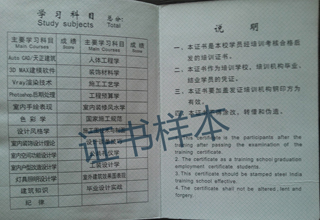 学习科目 总分:
Study subjects Total
主要学习科目 成绩 主要学习科目 成绩
Main Courses Score Main Courses Score
Auto CAD/天正建筑 人体工程学
3D MAX建模软件 装饰材料学
Vray渲染技术 施工工艺学
Photoshop后期处理 工程预算学
室内手绘表现 室内装修风水学
色彩学 国家施工规范
设计风格学
室内装饰设计理论
室内空间功能设计学
室内户型改造设计学 设计学
灯具照明设计学
建筑知识 毕业设计实战
纪律
说明
一、本证书是本校学员经培训考核合格后
发的培训证书。
二、本证书作为培训学校、培训机构毕业、
结业学员的凭证。
三、本证书要加盖发证培训机构钢印方为
有效。
改、转借和伪造。
is the participants after the
training after passing the examination of the
training certificate.
2. The certificate as a training school graduation
employment certificate students.
3. This certificate should be stamped steel India
training school effective.
4. The certificate shall not be altered, lent and
forgery.
证书样本